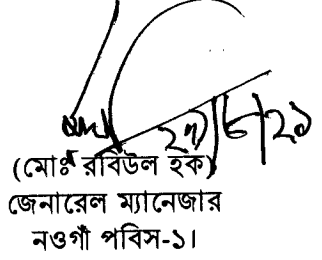 ২৭/৮/২১
(মোঃ রবিউল হক)
জেনারেল ম্যানেজার
নওগাঁ পবিস-১।